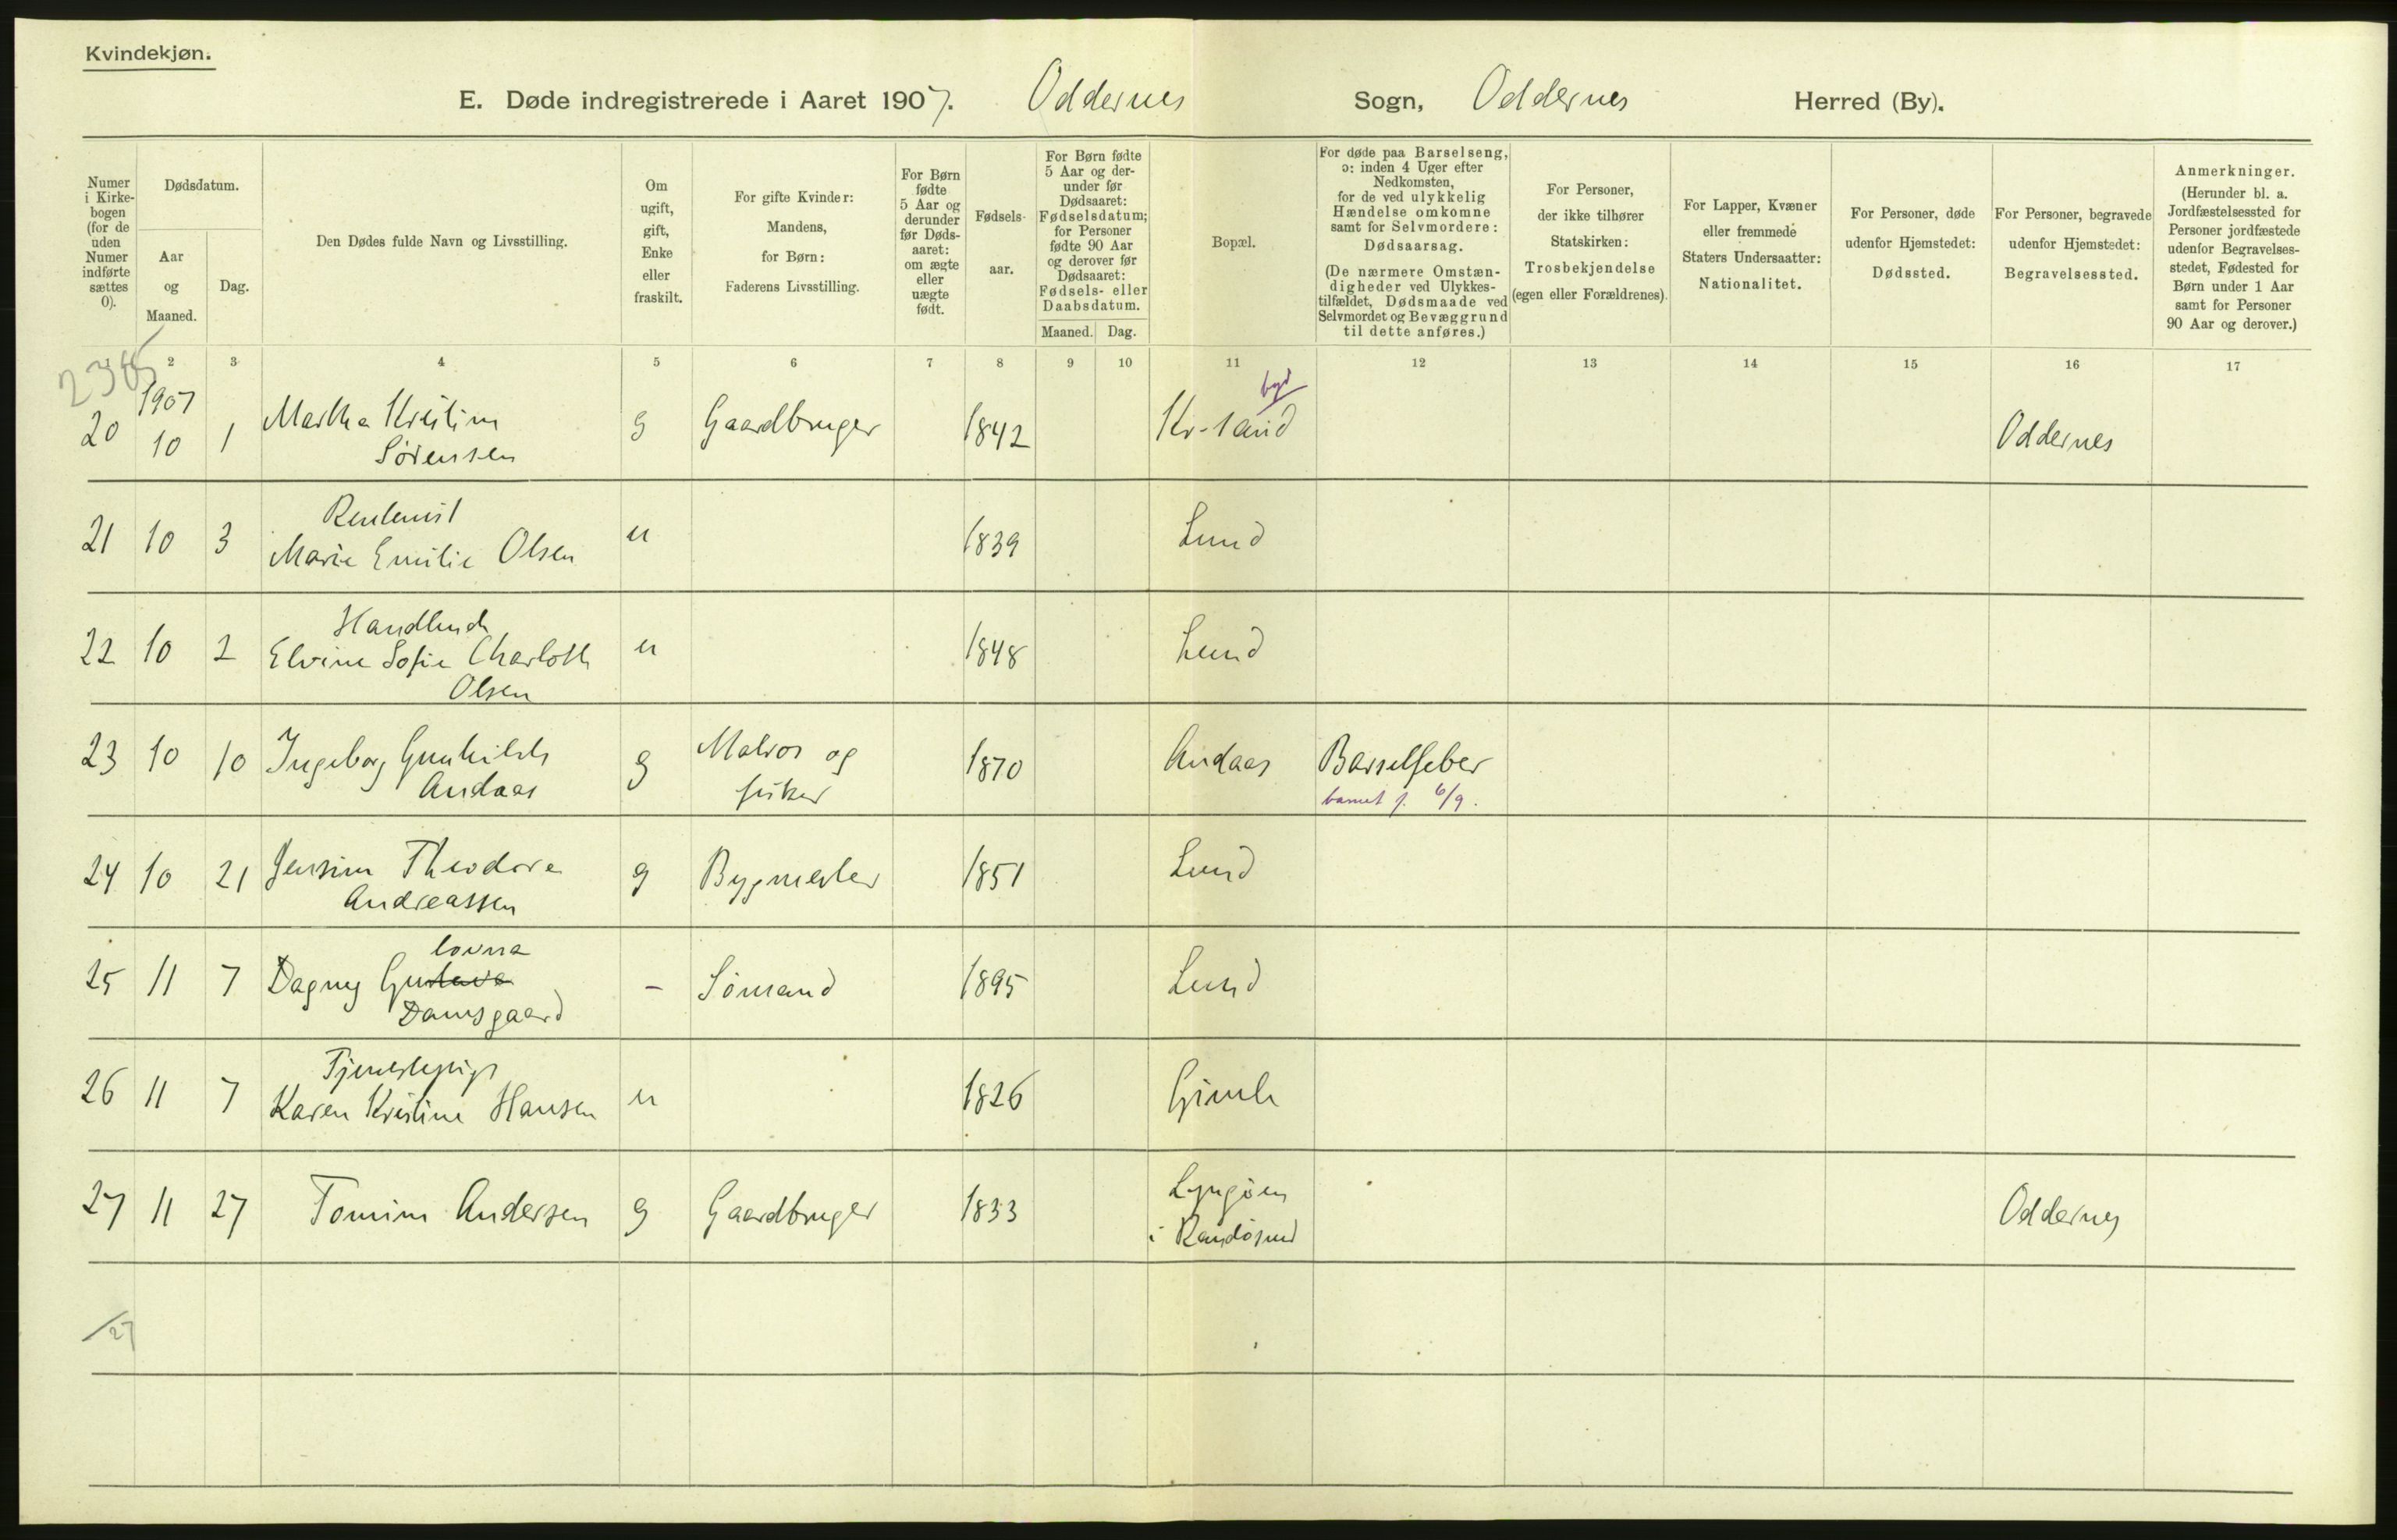 Kvindekjøn.
E. Døde indregistrerede i Aaret 1907. Oddernes Sogn, Oddernes Herred (By).
Numer i Kirke-bogen (for de uden Numer indførte sættes 0).
Dødsdatum.
Aar og Maaned.
Dag.
Den Dødes fulde Navn og Livsstilling.
Om ugift, gift, Enke eller fraskilt.
For gifte Kvinder: Mandens, for Børn: Faderens Livsstilling.
For Børn fødte 5 Aar og derunder før Døds-aaret: om ægte eller uægte født.
Fødsels-aar.
For Børn fødte 5 Aar og der-under før Dødsaaret: Fødselsdatum; for Personer fødte 90 Aar og derover før Dødsaaret: Fødsels- eller Daabsdatum.
Maaned. Dag.
Bopæl.
For døde paa Barselseng, ɔ: inden 4 Uger efter Nedkomsten, for de ved ulykkelig Hændelse omkomne samt for Selvmordere: Dødsaarsag.
(De nærmere Omstæn-digheder ved Ulykkes-tilfældet, Dødsmaade ved Selvmordet og Bevæggrund til dette anføres.)
For Personer, der ikke tilhører Statskirken: Trosbekjendelse (egen eller Forældrenes).
For Lapper, Kvæner eller fremmede Staters Undersaatter: Nationalitet.
For Personer, døde udenfor Hjemstedet: Dødssted.
For Personer, begravede udenfor Hjemstedet: Begravelsessted.
Anmerkninger.
(Herunder bl. a. Jordfæstelsessted for Personer jordfæstede udenfor Begravelses-stedet, Fødested for Børn under 1 Aar samt for Personer 90 Aar og derover.)
2 3 4 5 6 7 8 9 10 11 12 13 14 15 16 17
1907
byd
20 10 1 Martha Kristine Sørensen g Gaardbruger 1842 Kr-sand Oddernes
Rentenist
21 10 3 Marie Emilie Olsen u 1839 Lund
Handlende
22 10 2 Elvine Sofie Charlotte Olsen u 1848 Lund
23 10 10 Ingeborg Gunhilde Andaas g Matros og fisker 1870 Andaas Barselfeber
barnet f. 6/9.
24 10 21 Jensine Theodora Andreassen g Bygmester 1851 Lund
lovna
25 11 7 Dagny Gustava Damsgaard - Sømand 1895 Lund
Tjenestepige
26 11 7 Karen Kristine Hansen u 1826 Gimle
27 11 27 Tomine Andersen g Gaardbruger 1833 Lyngøen i Randøsund Oddernes
/27